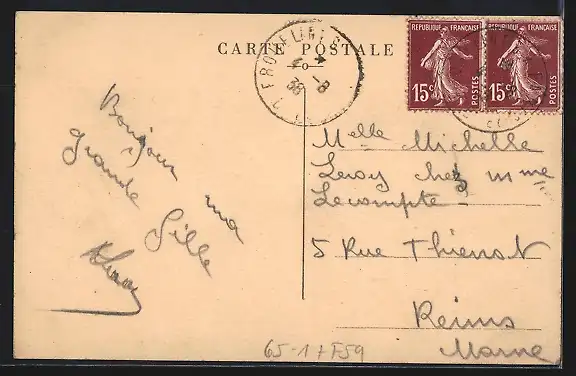 CARTE POSTALE
REPUBLIQUE FRANÇAISE
15c
POSTES
REPUBLIQUE FRANÇAISE
15c
POSTES
38
Bonjour ma
grande fille
Melle Michelle
Leroy chez Mme
Lecompte
5 Rue Thienot
Reims
Marne
65-17F59